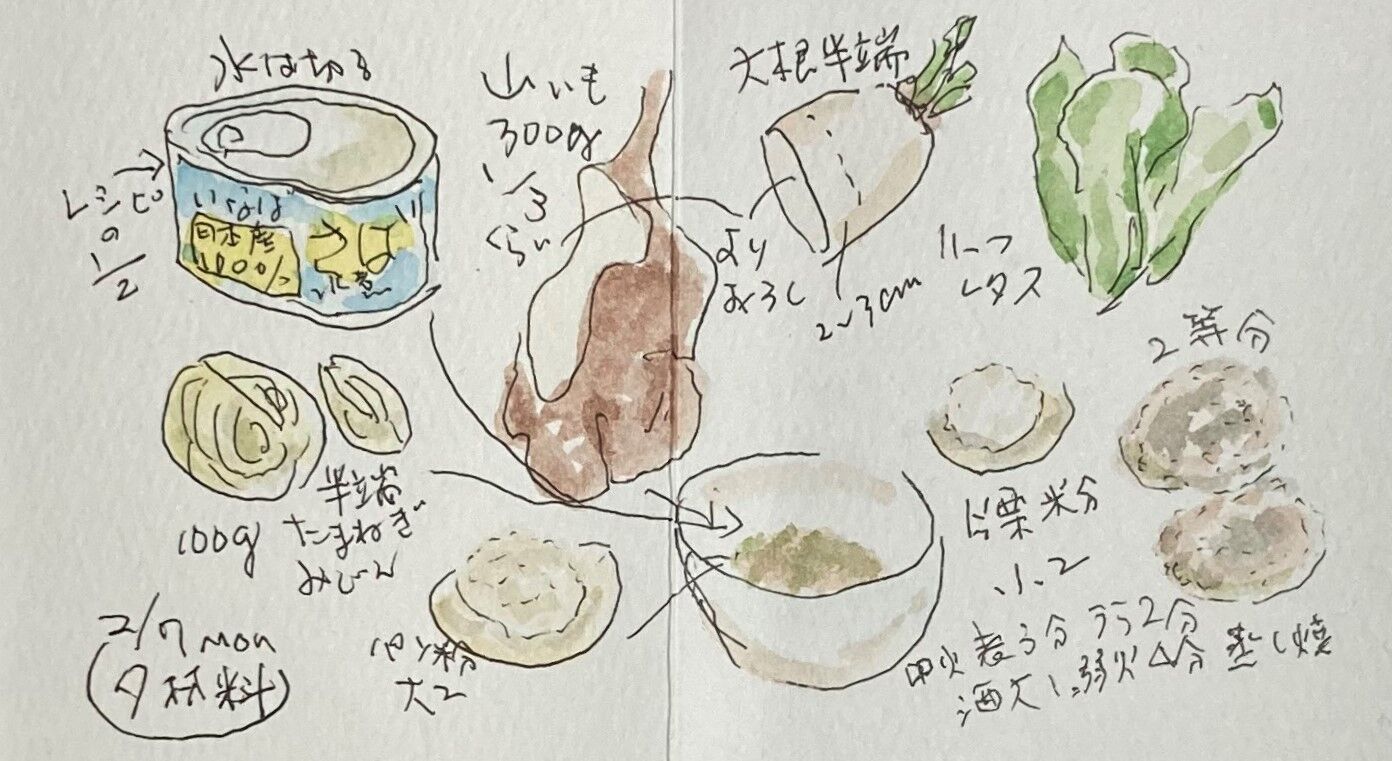 水は切る
レシピ
の
1/2
いなば
日本産
100%
さば
水煮
山いも
300g
1/3
くらい
大根半端
より
おろし
2〜3cm
リーフ
レタス
100g
半端
たまねぎ
みじん
パン粉
大2
片栗米分
小2
2等分
中火表3分 うら2分
酒大1、弱火4分 蒸し焼
2/7 mon
夕 材料